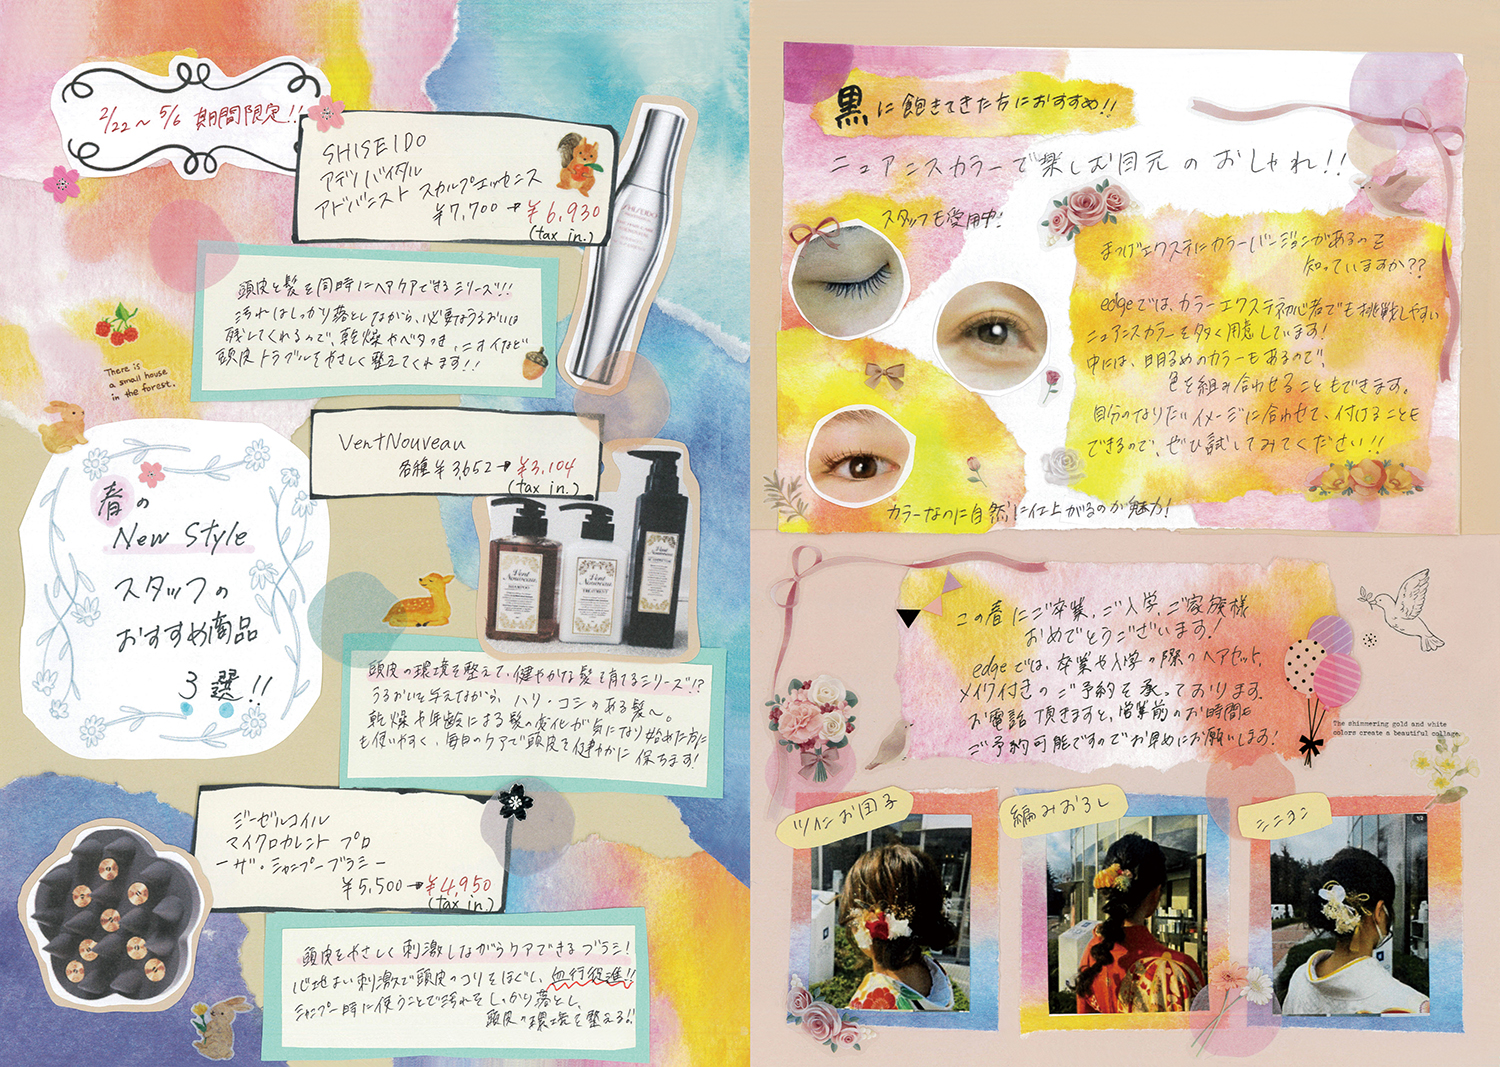 2/22～5/6 期間限定!!
SHISEIDO
アデノバイタル
アドバンスト スカルプエッセンス
¥7,700→¥6,930
(tax in.)
頭皮と髪を同時にヘアケアできるシリーズ!!
汚れはしっかり落としながら、必要なうるおいは
残してくれるので、乾燥やベタつき、ニオイなど
頭皮トラブルをやさしく整えてくれます!!
There is
a small house
in the forest.
VentNouveau
各種¥3,652→¥3,104
(tax in.)
春の
New Style
スタッフの
おすすめ商品
3選!!
Vent
Nouveau
SHAMPOO
Vent
Nouveau
TREATMENT
頭皮の環境を整えて、健やかな髪を育てるシリーズ!?
うるおいを与えながら、ハリ・コシのある髪へ。
乾燥や年齢による髪の変化が気になり始めた方に
も使いやすく、毎日のケアで頭皮を健やかに保ちます!
ジーゼルコイル
マイクロカレント プロ
ーザ・シャンプーブラシー
¥5,500→¥4,950
(tax in.)
頭皮をやさしく刺激しながらケアできるブラシ!
心地よい刺激で頭皮のコリをほぐし、血行促進!!
シャンプー時に使うことで汚れをしっかり落とし、
頭皮の環境を整える!!
黒に飽きてきた方におすすめ!!
ニュアンスカラーで楽しむ目元のおしゃれ!!
スタッフも愛用中!
まつげエクステにカラーバージョンがあるのを
知っていますか??
edgeでは、カラーエクステ初心者でも挑戦しやすい
ニュアンスカラーを多く用意しています!
中には、明るめのカラーもあるので、
色を組み合わせることもできます。
自分のなりたいイメージに合わせて、付けることも
できるので、ぜひ試してみてください!!
カラーなのに自然に仕上がるのが魅力!
この春にご卒業、ご入学、ご家族様
おめでとうございます!
edgeでは、卒業や入学の際のヘアセット、
メイク付きのご予約を承っております。
お電話頂きますと、営業前のお時間も
ご予約可能ですのでお早めにお願いします!
The shimmering gold and white
colors create a beautiful collage.
ツイスお団子
編みおろし
シニヨン
1/2